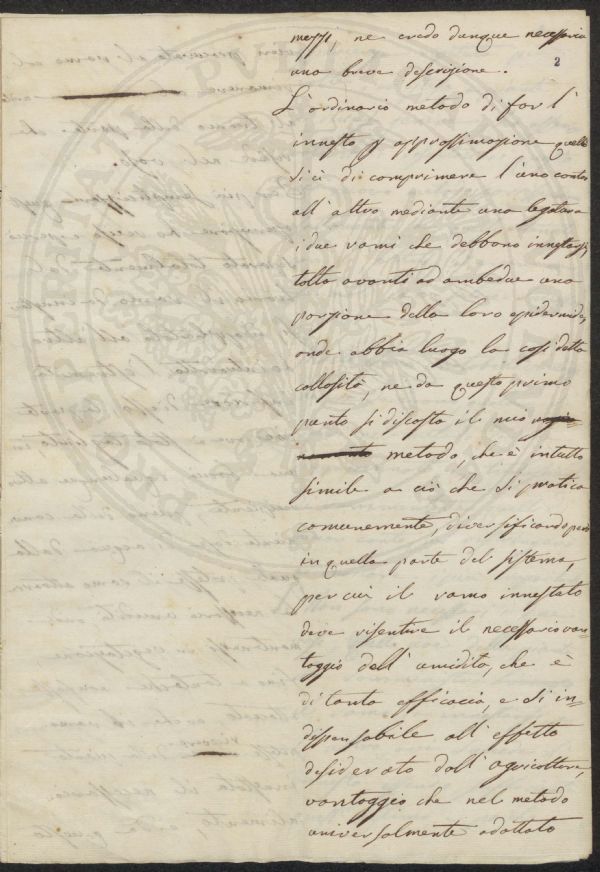 mezzi, ne credo dunque necessaria
2
una breve descrizione.
L'ordinario metodo di far l'
innesto p approssimazione quello
si è di comprimere l'uno contro
all'altro mediante una legatura
i due rami che debbono innestarsi,
tolta avanti ad ambedue una
porzione della loro epidermide,
onde abbia luogo la così detta
callosità, ne da questo primo
punto si discosta il mio
metodo, che è in tutto
simile a ciò che si pratica
comunemente, diversificando però
in quella parte del sistema,
per cui il ramo innestato
deve risentire il necessario van-
taggio dell'umidità, che è
di tanta efficacia, e sì in-
dispensabile all'effetto
desiderato dall'agricoltore,
vantaggio che nel metodo
universalmente adottato